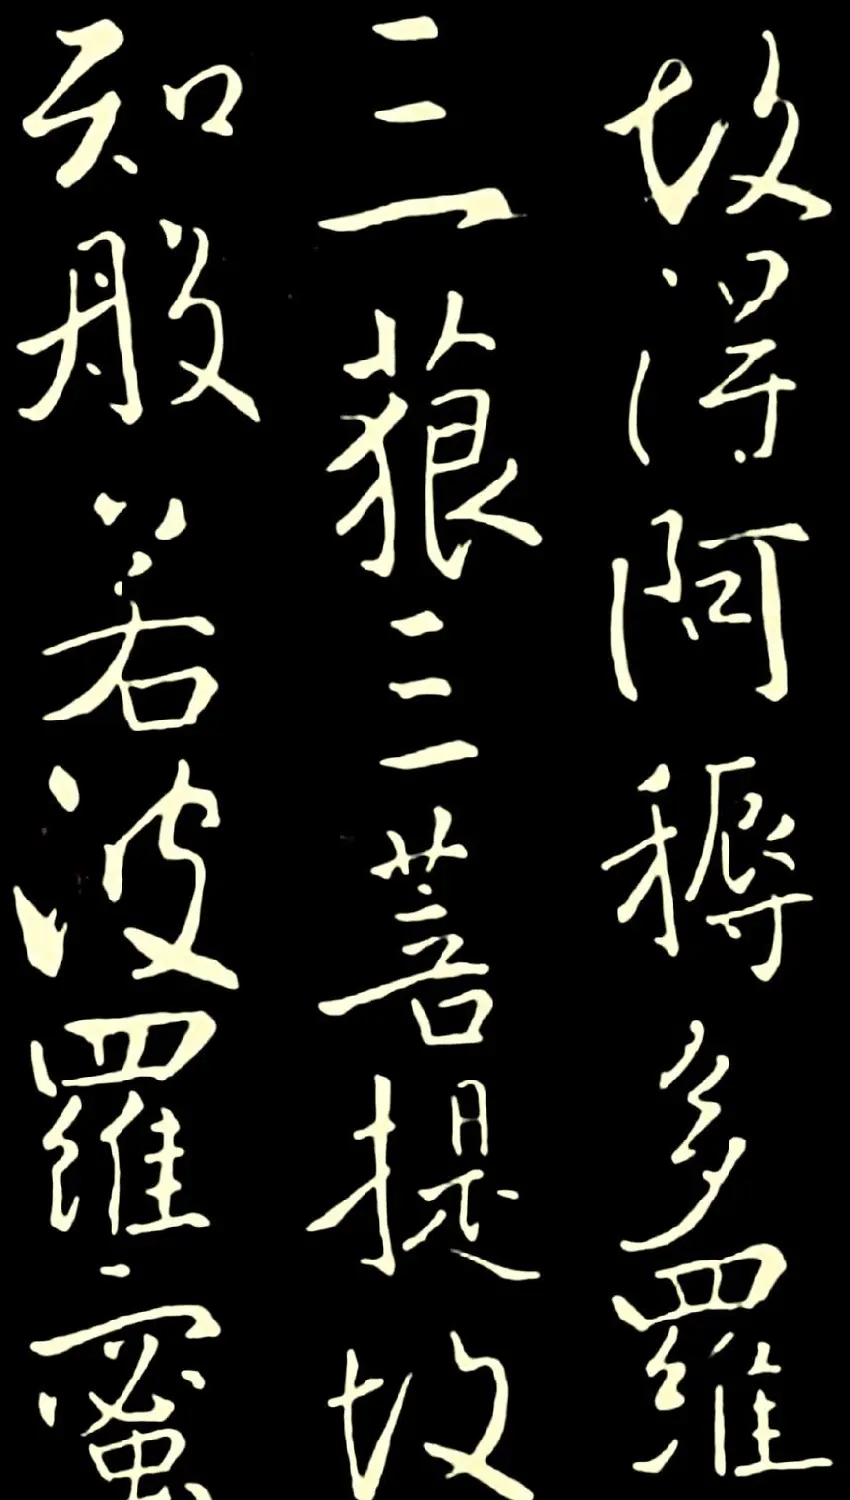 故得阿耨多羅
三藐三菩提故
知般若波羅蜜